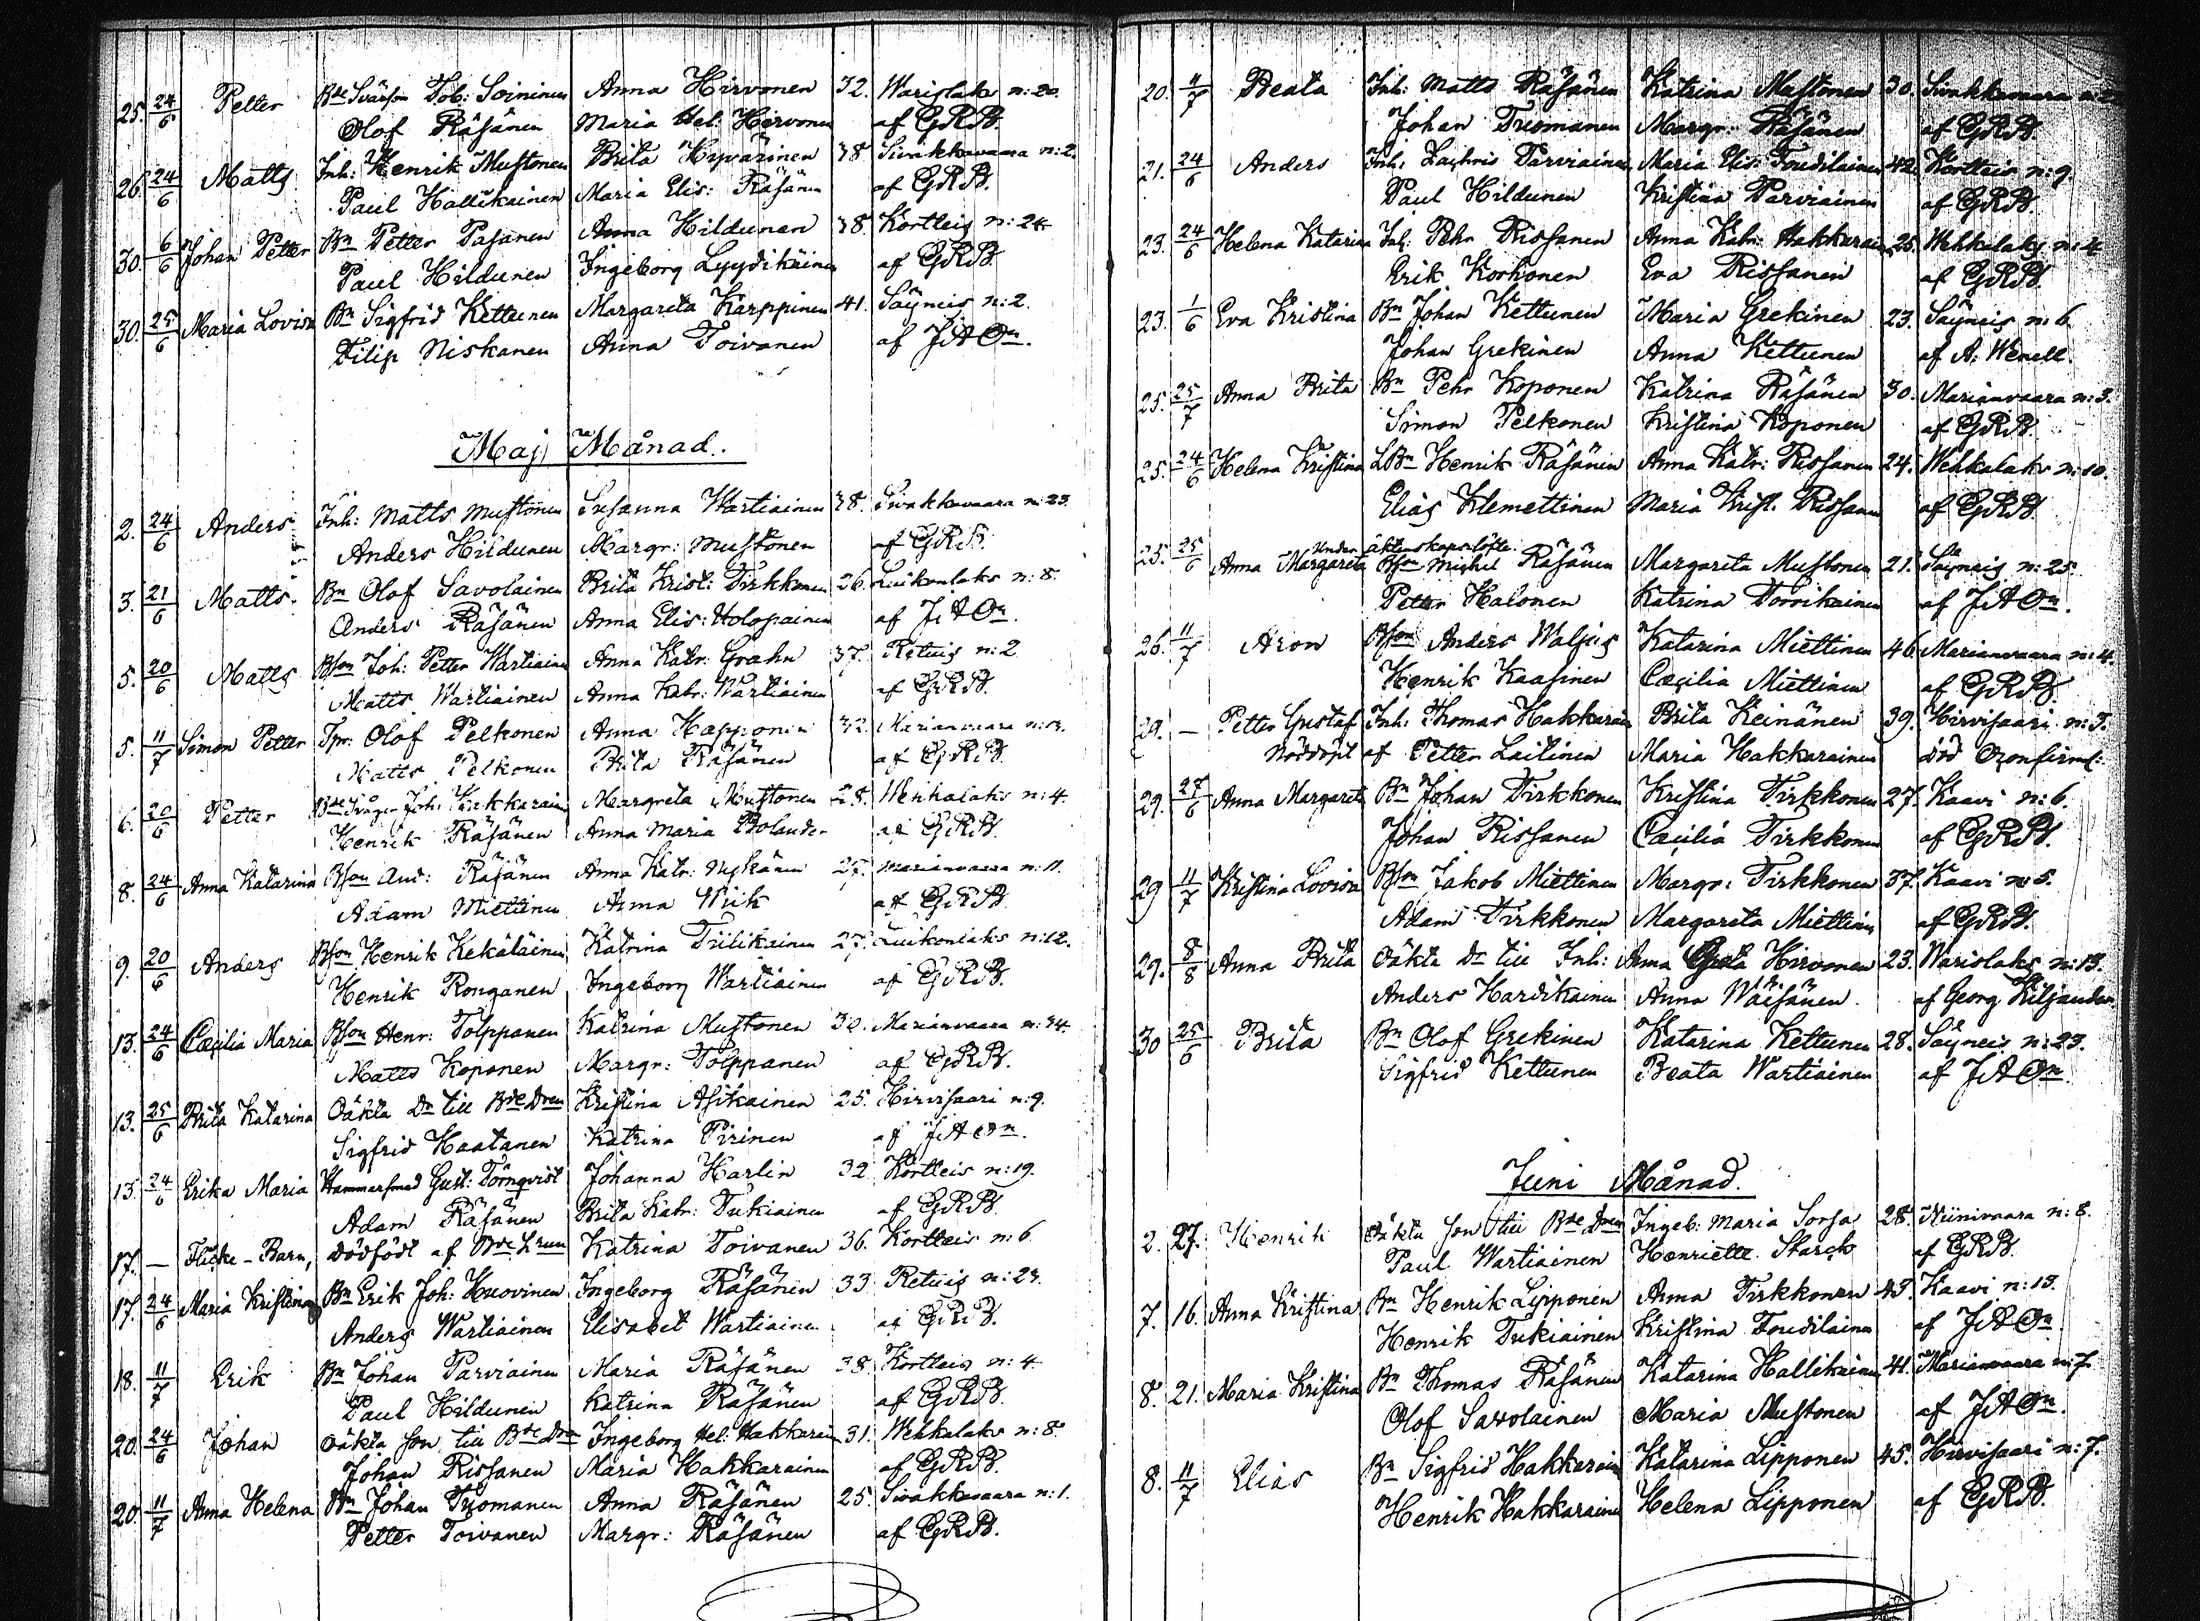 25. 24/6 Petter Bde Svärson Tob: Soininen Anna Hirvonen 32. Warislaks n: 20.
Olof Räsänen Maria Hel: Hirvonen af GRB.
26. 24/6 Matts Inh: Henrik Mustonen Brita Hyvärinen 38 Sivakkavaara n: 2.
Paul Hallikainen Maria Elis: Räsänen af GRB.
30. 6/6 Johan Petter Bn Petter Pasanen Anna Hildunen 38. Kortteis n: 24
Paul Hildunen Ingeborg Lyydikäinen af GRB.
30. 25/6 Maria Lovisa Bn Sigfrid Kettunen Margareta Karppinen 41. Säyneis n: 2.
Filip Niskanen Anna Toivanen af JAOn.
Maj Månad.
2. 24/6 Anders Inh: Matts Mustonen Susanna Wartiainen 38. Sivakkavaara n: 23.
Anders Hildunen Margr: Mustonen af GRB.
3. 21/6 Matts Bn Olof Savolainen Brita Krist: Tirkkonen 26. Luikonlaks n: 8.
Anders Räsänen Anna Elis: Holopainen af JAOn.
5. 20/6 Matts Bson Joh: Petter Wartiainen Anna Katr: Grahn 37. Retuis n: 2
Matts Wartiainen Anna Katr: Wartiainen af GRB.
5. 11/7 Simon Petter Tpr. Olof Pelkonen Anna Happonen 32. Marianvaara n: 13.
Matts Pelkonen Brita Räsänen af GRB.
6. 20/6 Petter Bde Svåger Joh: Hakkarainen Margreta Mustonen 28. Wehkalaks n: 4.
Henrik Räsänen Anna Maria Bolander af GRB.
8. 24/6 Anna Katarina Bson And: Räsänen Anna Katr: Niskänen 25. Marianvaara n: 11.
Adam Miettinen Anna Wiik af GRB.
9. 20/6 Anders Bson Henrik Kekäläinen Katrina Tiilikainen 27. Luikonlaks n: 12.
Henrik Ronganen Ingeborg Wartiainen af GRB.
13. 24/6 Cæcilia Maria Bson Henr: Tolppanen Katrina Mustonen 30. Marianvaara n: 34.
Matts Koponen Margr: Tolppanen af GRB.
13. 25/6 Brita Katarina Oäkta Dr till Bde Dren Kristina Asikainen 25. Hirvisaari n: 9.
Sigfrid Haatanen Katrina Pirinen af JAOn.
13. 24/6 Erika Maria Hammarsmed Gust: Törnqvist Johanna Harlin 32 Kortteis n: 19.
Adam Räsänen Brita Katr: Tukiainen af GRB.
17. — Flicke-Barn, dödfödt af Bde Hrun Katrina Toivanen 36. Kortteis n: 6.
17. 24/6 Maria Kristina Bn Erik Joh: Huovinen Ingeborg Räsänen 33. Retuis n: 23.
Anders Wartiainen Elisabet Wartiainen af GRB.
18. 11/7 Erik Bn Johan Parviainen Maria Räsänen 38. Kortteis n: 4.
Paul Hildunen Katrina Räsänen af GRB.
20. 24/6 Johan Oäkta son till Bde Dren Ingeborg Hel: Hakkarain 31. Wehkalaks n: 8.
Johan Rissanen Maria Hakkarainen af GRB.
20. 11/7 Anna Helena Bn Johan Tuomanen Anna Räsänen 25. Sivakkavaara n: 1.
Petter Toivanen Margr: Räsänen af GRB.
20. 11/7 Beata Inh: Matts Räsänen Katrina Mustonen 30. Sivakkavaara n: 2
Johan Tuomanen Margr: Räsänen af GRB.
21. 24/6 Anders Inh: Zachris Parviainen Maria Elis: Toudilainen 42. Kortteis n: 9.
Paul Hildunen Kristina Parviainen af GRB.
23. 24/6 Helena Katarina Inh: Pehr Rissanen Anna Katr: Hakkarain 25. Wehkalaks n: 4
Erik Korhonen Eva Rissanen af GRB.
23. 1/6 Eva Kristina Bn Johan Kettunen Maria Grekinen 23. Säyneis n: 6.
Johan Grekinen Anna Kettunen af A: Wenell.
25. 25/7 Anna Brita Bn Pehr Koponen Katrina Räsänen 30. Marianvaara n: 3.
Simon Pelkonen Kristina Koponen af GRB.
25. 24/6 Helena Kristina LBn Henrik Räsänen Anna Katr: Rissanen 24. Wehkalaks n: 10.
Elias Klemettinen Maria Krist. Rissanen af GRB.
Under äktenskapslöfte.
25. 25/6 Anna Margareta Bson Michel Räsänen Margareta Mustonen 21. Säyneis n: 25.
Petter Halonen Katrina Torvikainen af JAOn.
26. 11/7 Aron Bson Anders Waljus Katarina Miettinen 46. Marianvaara n: 4.
Henrik Kaasinen Cæcilia Miettinen af GRB.
29. — Petter Gustaf Inh: Thomas Hakkarain Brita Keinänen 39. Hirvisaari n: 3.
Nöddöpt af Petter Laitinen Maria Hakkarainen död Oconfirm:
29. 27/6 Anna Margareta Bn Johan Tirkkonen Kristina Tirkkonen 27. Kaavi n: 6.
Johan Rissanen Cæcilia Tirkkonen af GRB.
29 11/7 Kristina Lovisa Bson Jakob Miettinen Margr: Tirkkonen 37. Kaavi n: 5.
Adam Tirkkonen Margareta Miettinen af GRB.
29. 8/8 Anna Brita Oäkta Dr till Inh: Anna Greta Hirvonen 23. Warislaks n: 13.
Anders Hardikainen Anna Wäisänen af Georg Kiljander.
30 25/6 Brita Bn Olof Grekinen Katarina Kettunen 28. Säyneis n: 23.
Sigfrid Kettunen Beata Wartiainen af JAOn.
Juni Månad.
2. 27. Henrik Oäkta son till Bde Dren Ingeb: Maria Sorsa 28. Niinivaara n: 8.
Paul Wartiainen Henriette Starck af GRB.
7. 16. Anna Kristina Bn Henrik Lipponen Anna Tirkkonen 43. Kaavi n: 13.
Henrik Tukiainen Kristina Toudilainen af JAOn.
8. 21. Maria Kristina Bn Thomas Räsänen Katarina Hallikainen 41. Marianvaara n: 7.
Olof Savolainen Maria Mustonen af JAOn.
8. 11/7 Elias Bn Sigfrid Hakkarain Katarina Lipponen 45. Hirvisaari n: 7.
Henrik Hakkarainen Helena Lipponen af GRB.